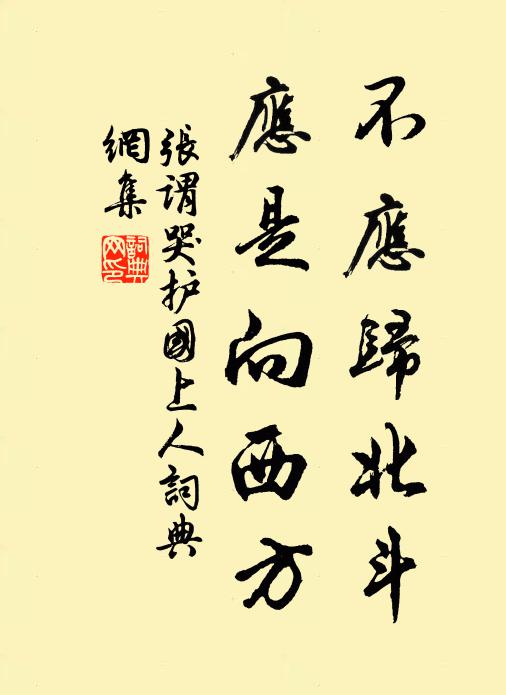 不應歸北斗
應是向西方
張謂哭护國上人詞典
網集
詞典
网印